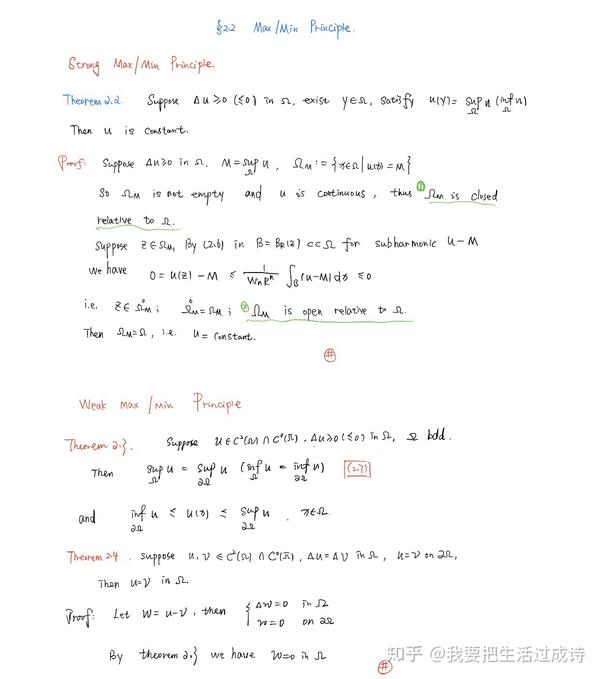 §2.2 Max/Min Principle.
Strong Max/Min Principle.
Theorem 2.2. Suppose Δu ≥0 (≤0) in Ω, exist y∈Ω, satisfy u(y)= sup_Ω u (inf_Ω u)
Then u is constant.
Proof: Suppose Δu≥0 in Ω, M=sup_Ω u, Ω_M := {x∈Ω | u(x)=M}
So Ω_M is not empty and u is continuous, thus ① Ω_M is closed
relative to Ω.
Suppose z∈Ω_M, By (2.6) in B=B_R(z) ⊂⊂ Ω for subharmonic u-M
we have 0 = u(z) - M ≤ 1/(w_n R^n) ∫_B (u-M) dx ≤0
i.e. z∈Ω°_M ; Ω°_M = Ω_M ; ② Ω_M is open relative to Ω.
Then Ω_M=Ω, i.e. u= constant.
#
Weak max/min Principle
Theorem 2.3. Suppose u∈C²(Ω)∩C⁰(Ω̄), Δu≥0 (≤0) in Ω, Ω bdd.
Then sup_Ω u = sup_∂Ω u (inf_Ω u = inf_∂Ω u) (2.7)
and inf_∂Ω u ≤ u(x) ≤ sup_∂Ω u, x∈Ω.
Theorem 2.4. suppose u,v∈C²(Ω)∩C⁰(Ω̄), Δu=Δv in Ω, u=v on ∂Ω,
Then u=v in Ω.
Proof: Let w=u-v, then { Δw=0 in Ω
w=0 on ∂Ω
By theorem 2.3 we have w=0 in Ω
#
知乎 @我要把生活过成诗